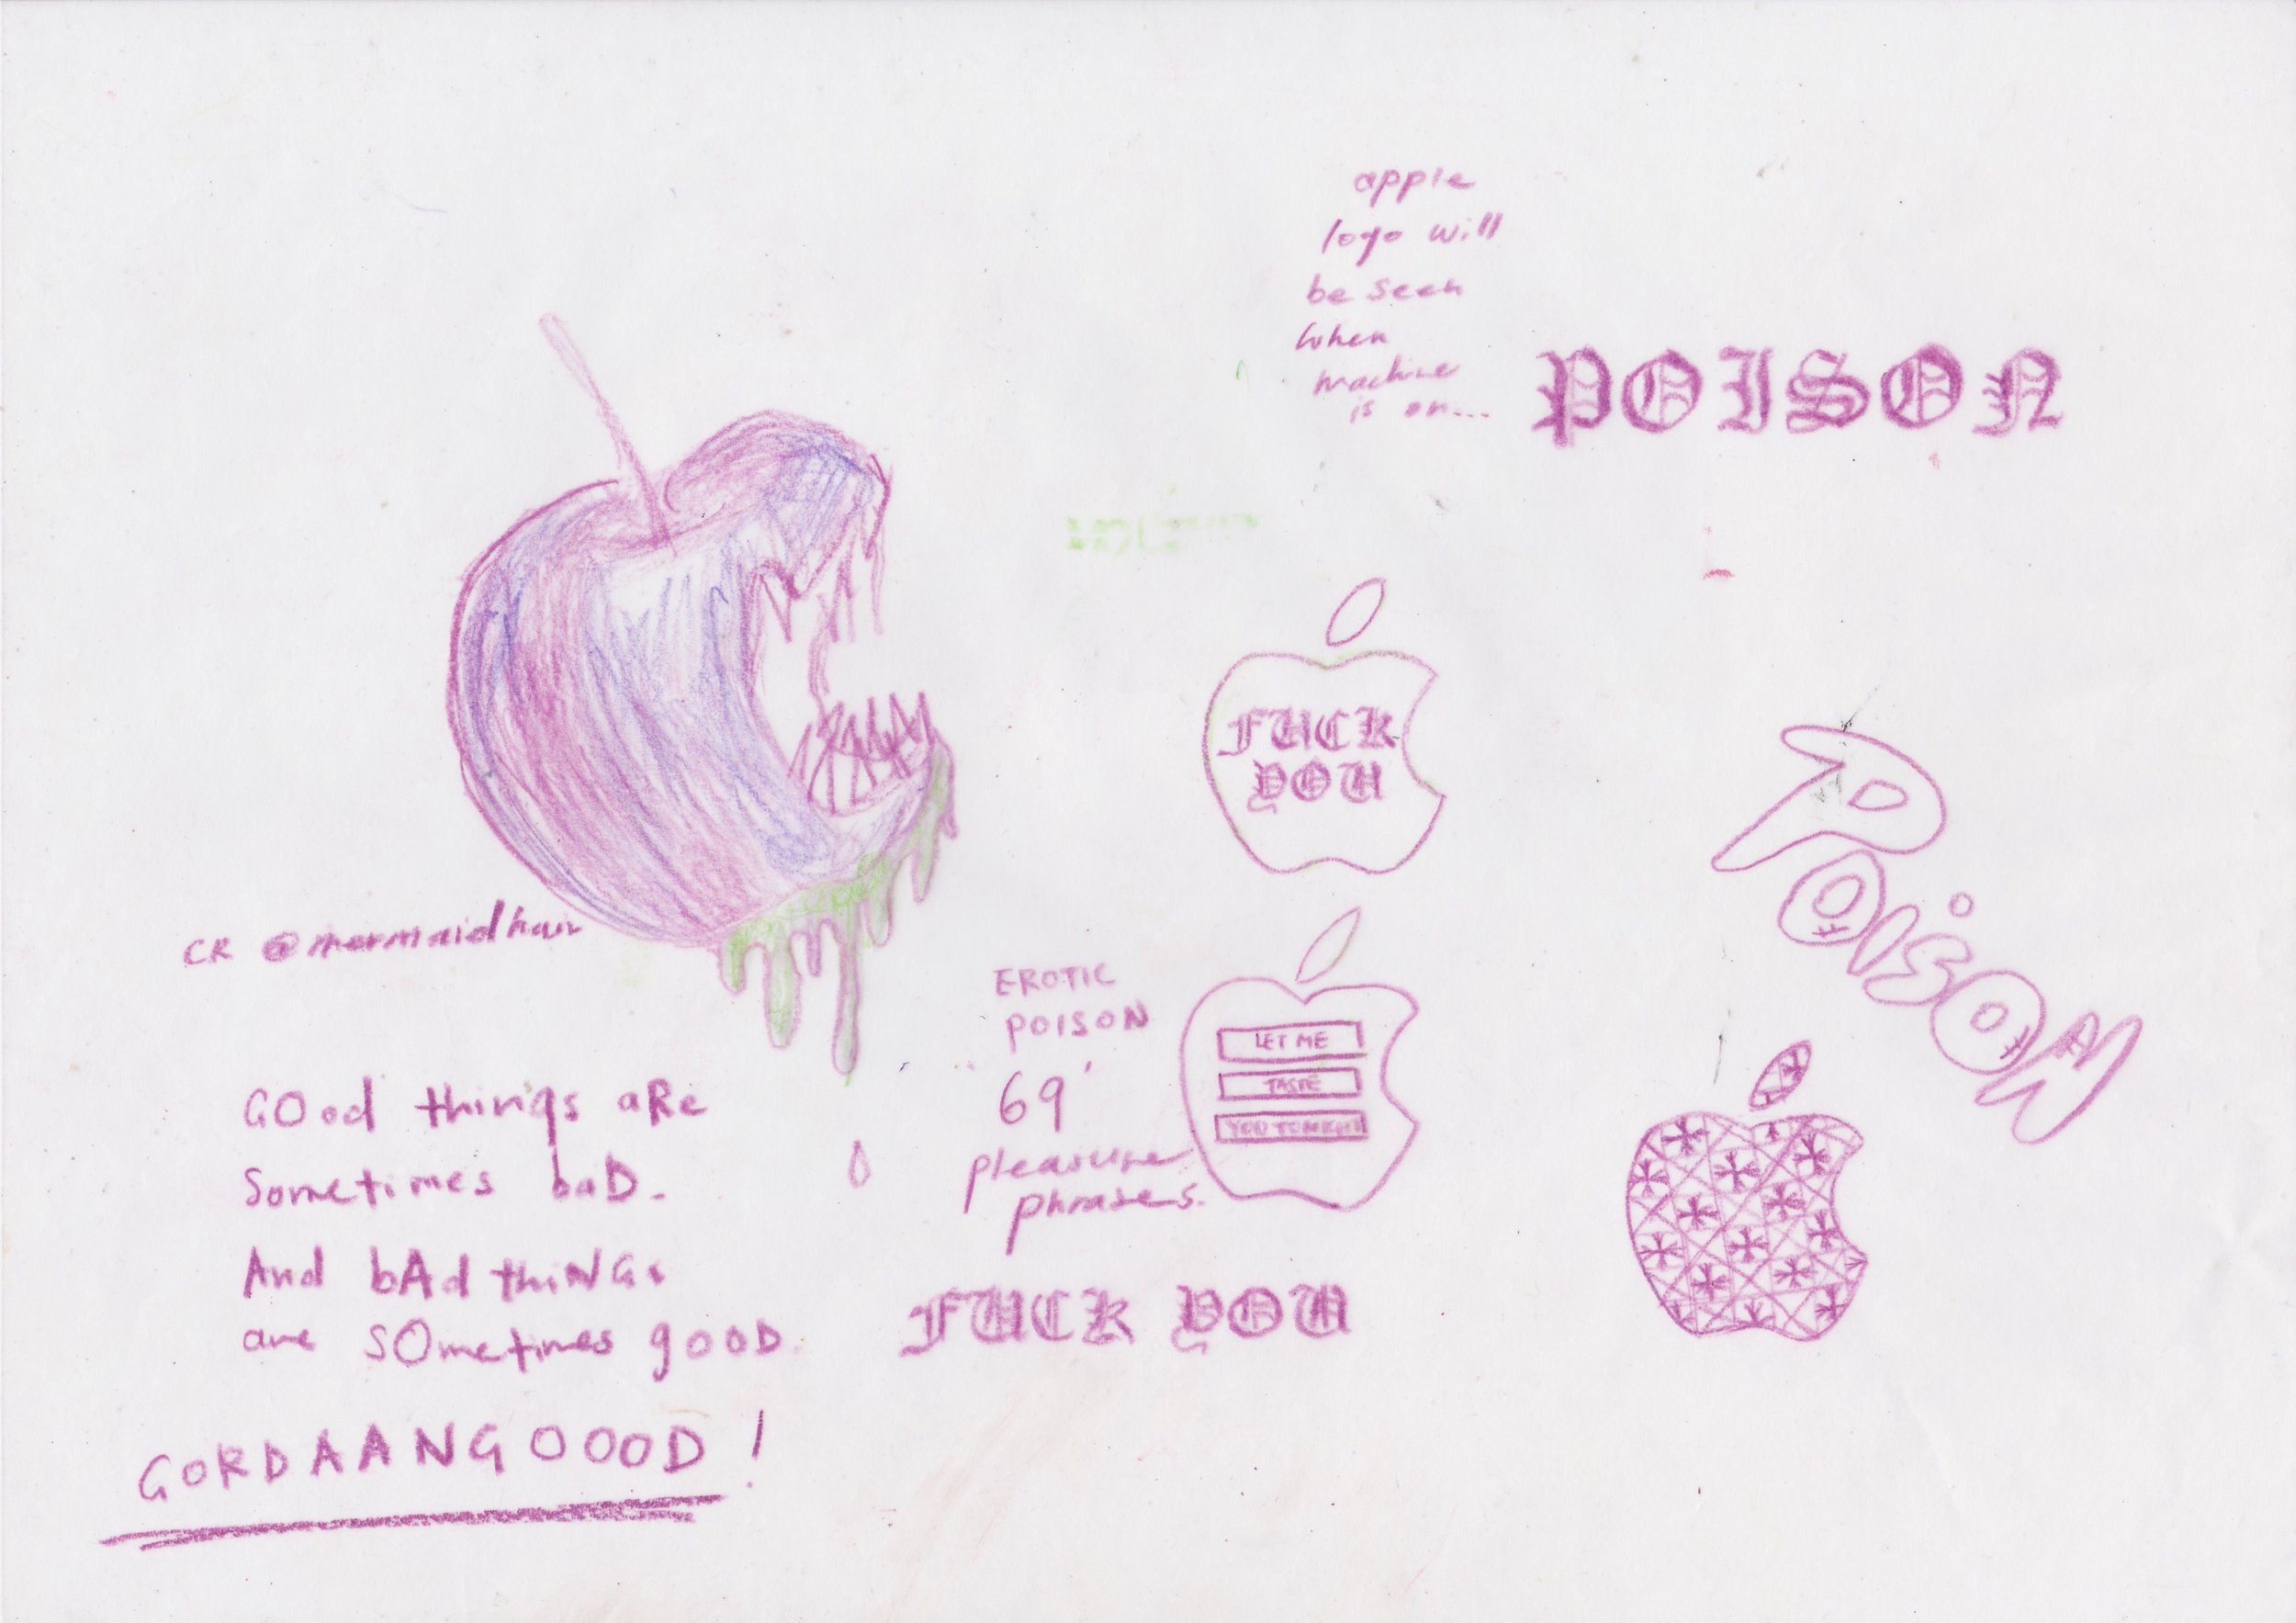 apple
logo will
be seen
when
machine
is on...
POISON
FUCK
YOU
POiSON
CR @mermaidhair
EROTIC
POISON
69'
pleasure
phrases.
LET ME
TASTE
YOU TONIGHT
GOod things aRe
Sometimes baD.
And bAd thiNGs
are sOmetimes gooD.
FUCK YOU
GORDAANGOOOD!